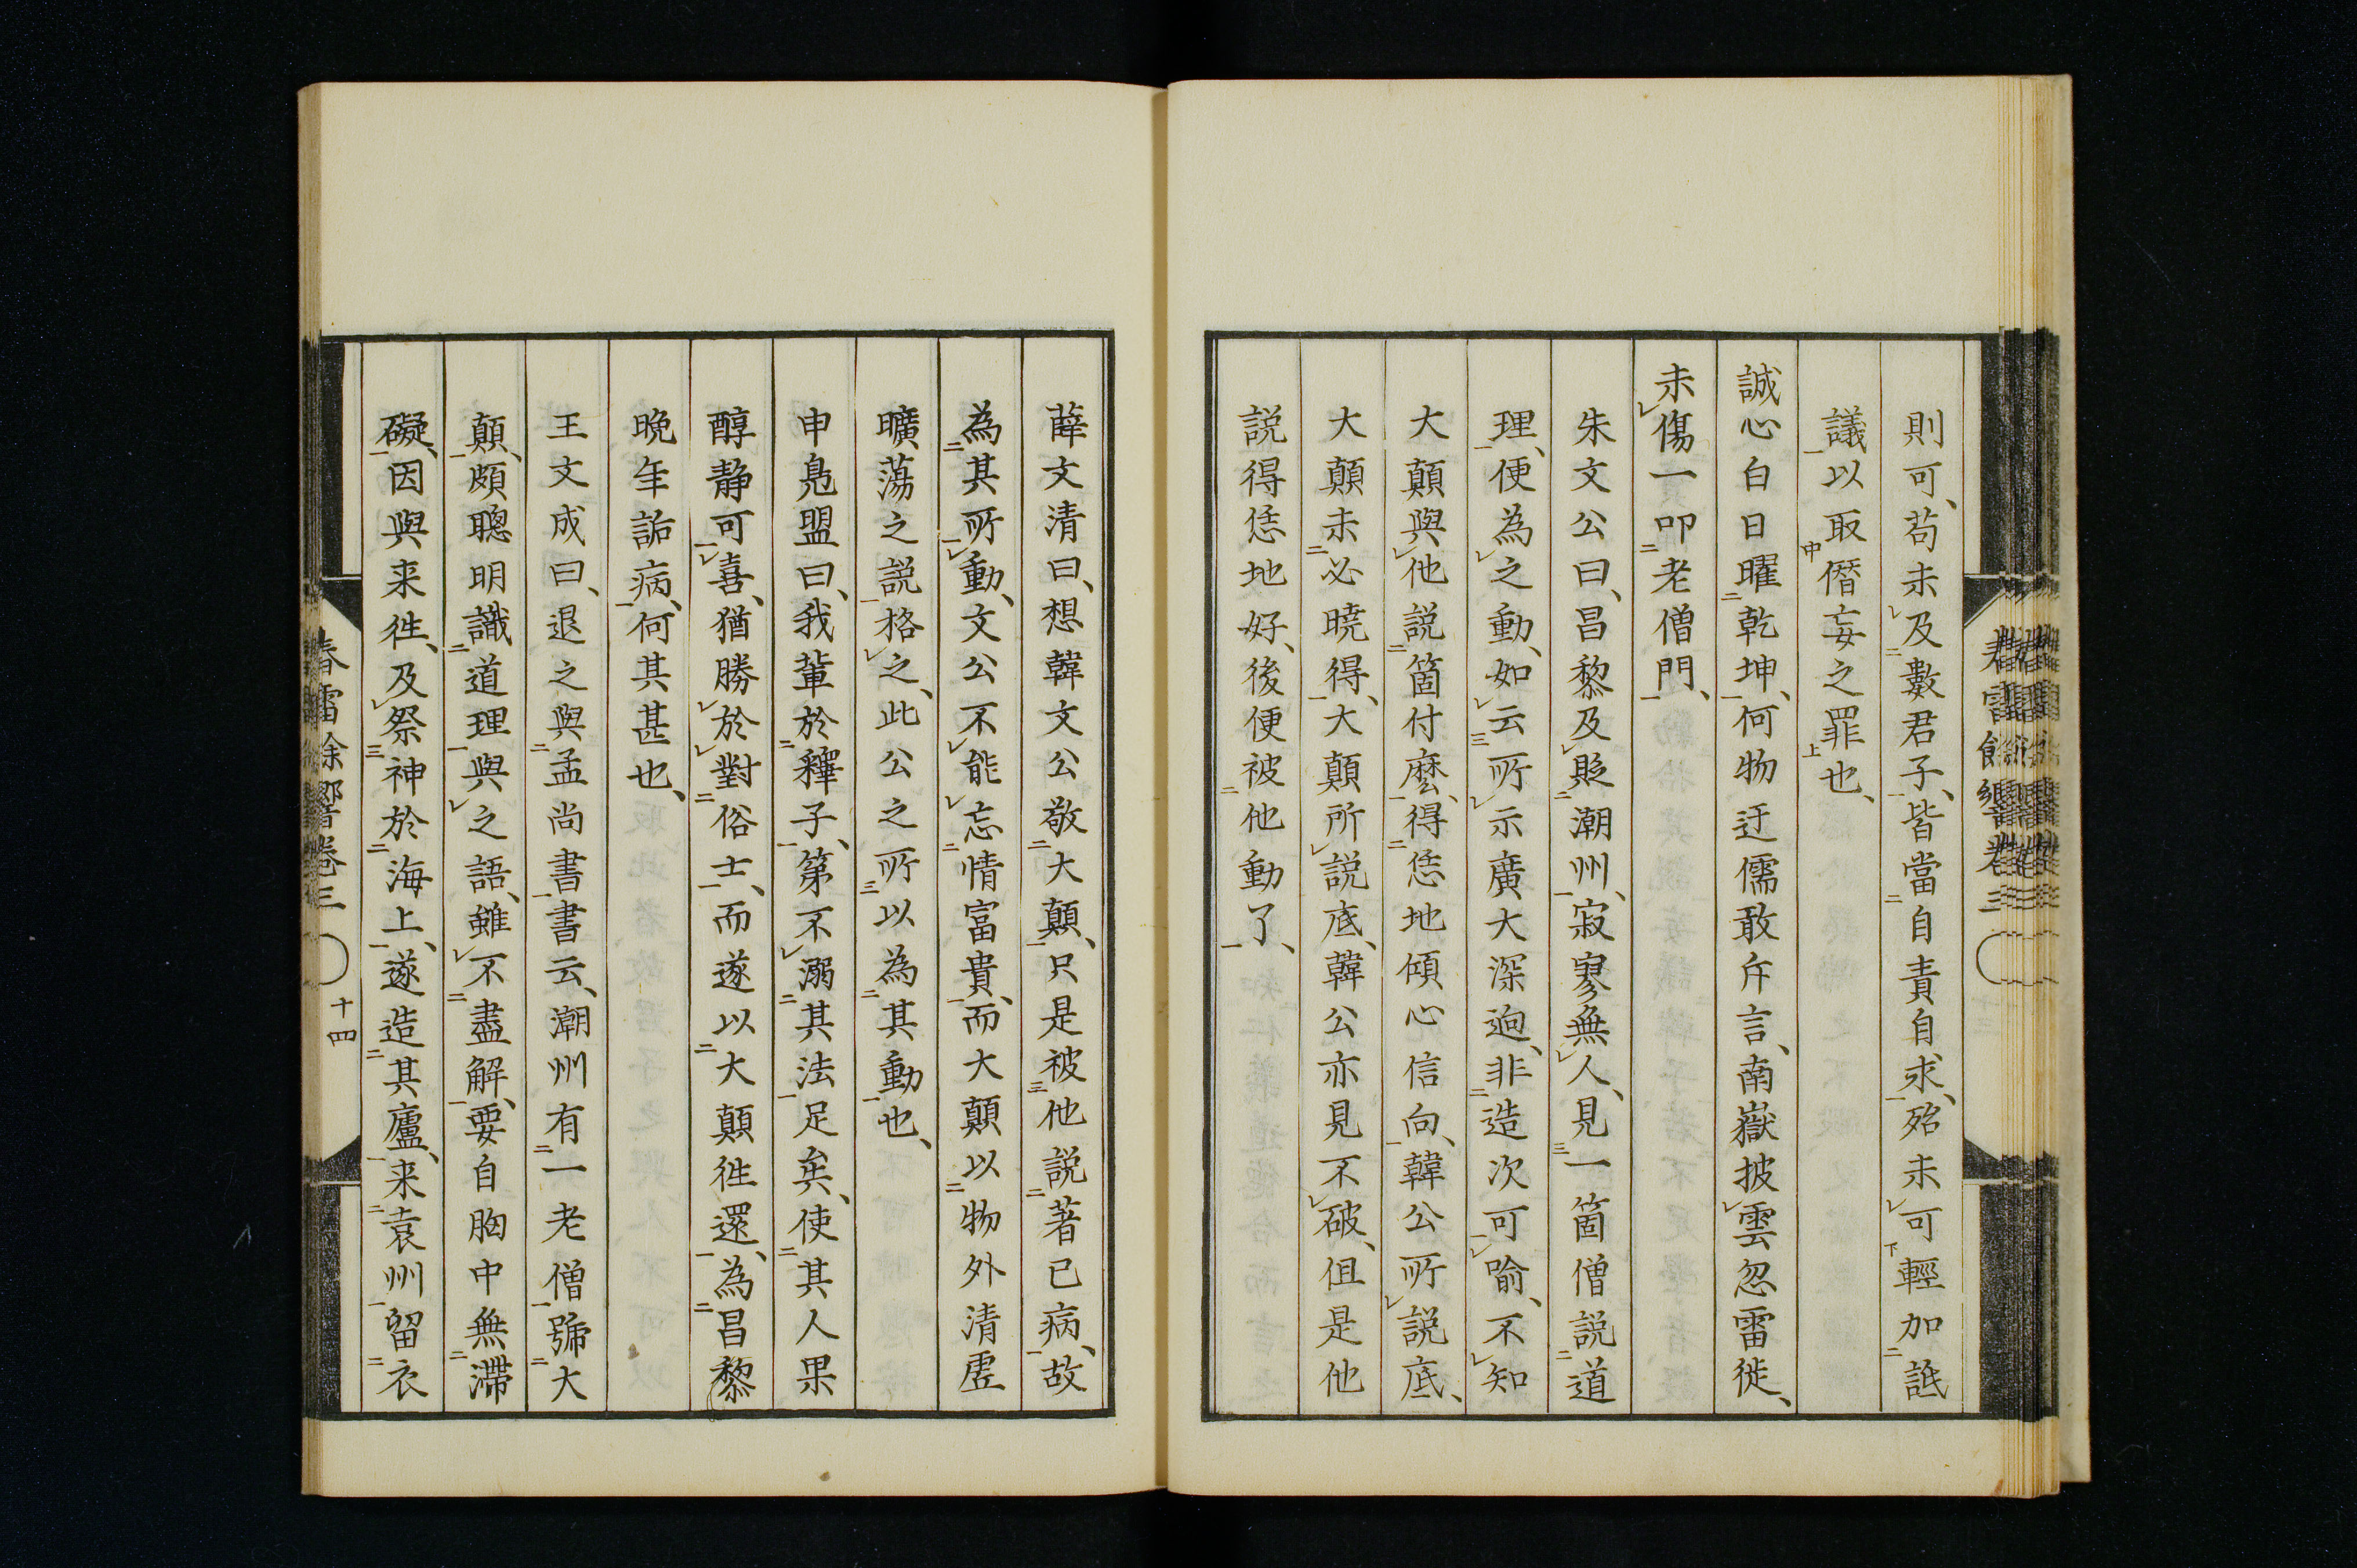 則可、苟未及數君子、皆當自責自求、殆未可輕加詆
議以取僭妄之罪也、
誠心白日曜乾坤、何物迂儒敢斥言、南嶽披雲忽雷徙、
未傷一叩老僧門、
朱文公曰、昌黎及貶潮州、寂寥無人、見一箇僧説道
理、便為之動、如云所示廣大深逈、非造次可喻、不知
大顛與他説箇什麼、得恁地傾心信向、韓公所説底、
大顛未必曉得、大顛所説底、韓公亦見不破、但是他
説得恁地好、後便被他動了、
薛文清曰、想韓文公敬大顛、只是被他説著已病、故
為其所動、文公不能忘情富貴、而大顛以物外清虛
曠蕩之説格之、此公之所以為其動也、
申鳧盟曰、我輩於釋子、第不溺其法足矣、使其人果
醇静可喜、猶勝於對俗士、而遂以大顛徃還、為昌黎
晩年詬病、何其甚也、
王文成曰、退之與孟尚書書云、潮州有一老僧號大
顛、頗聰明識道理與之語、雖不盡解、要自胸中無滯
礙、因與来徃、及祭神於海上、遂造其廬、来袁州留衣
春雷餘響卷三 十四